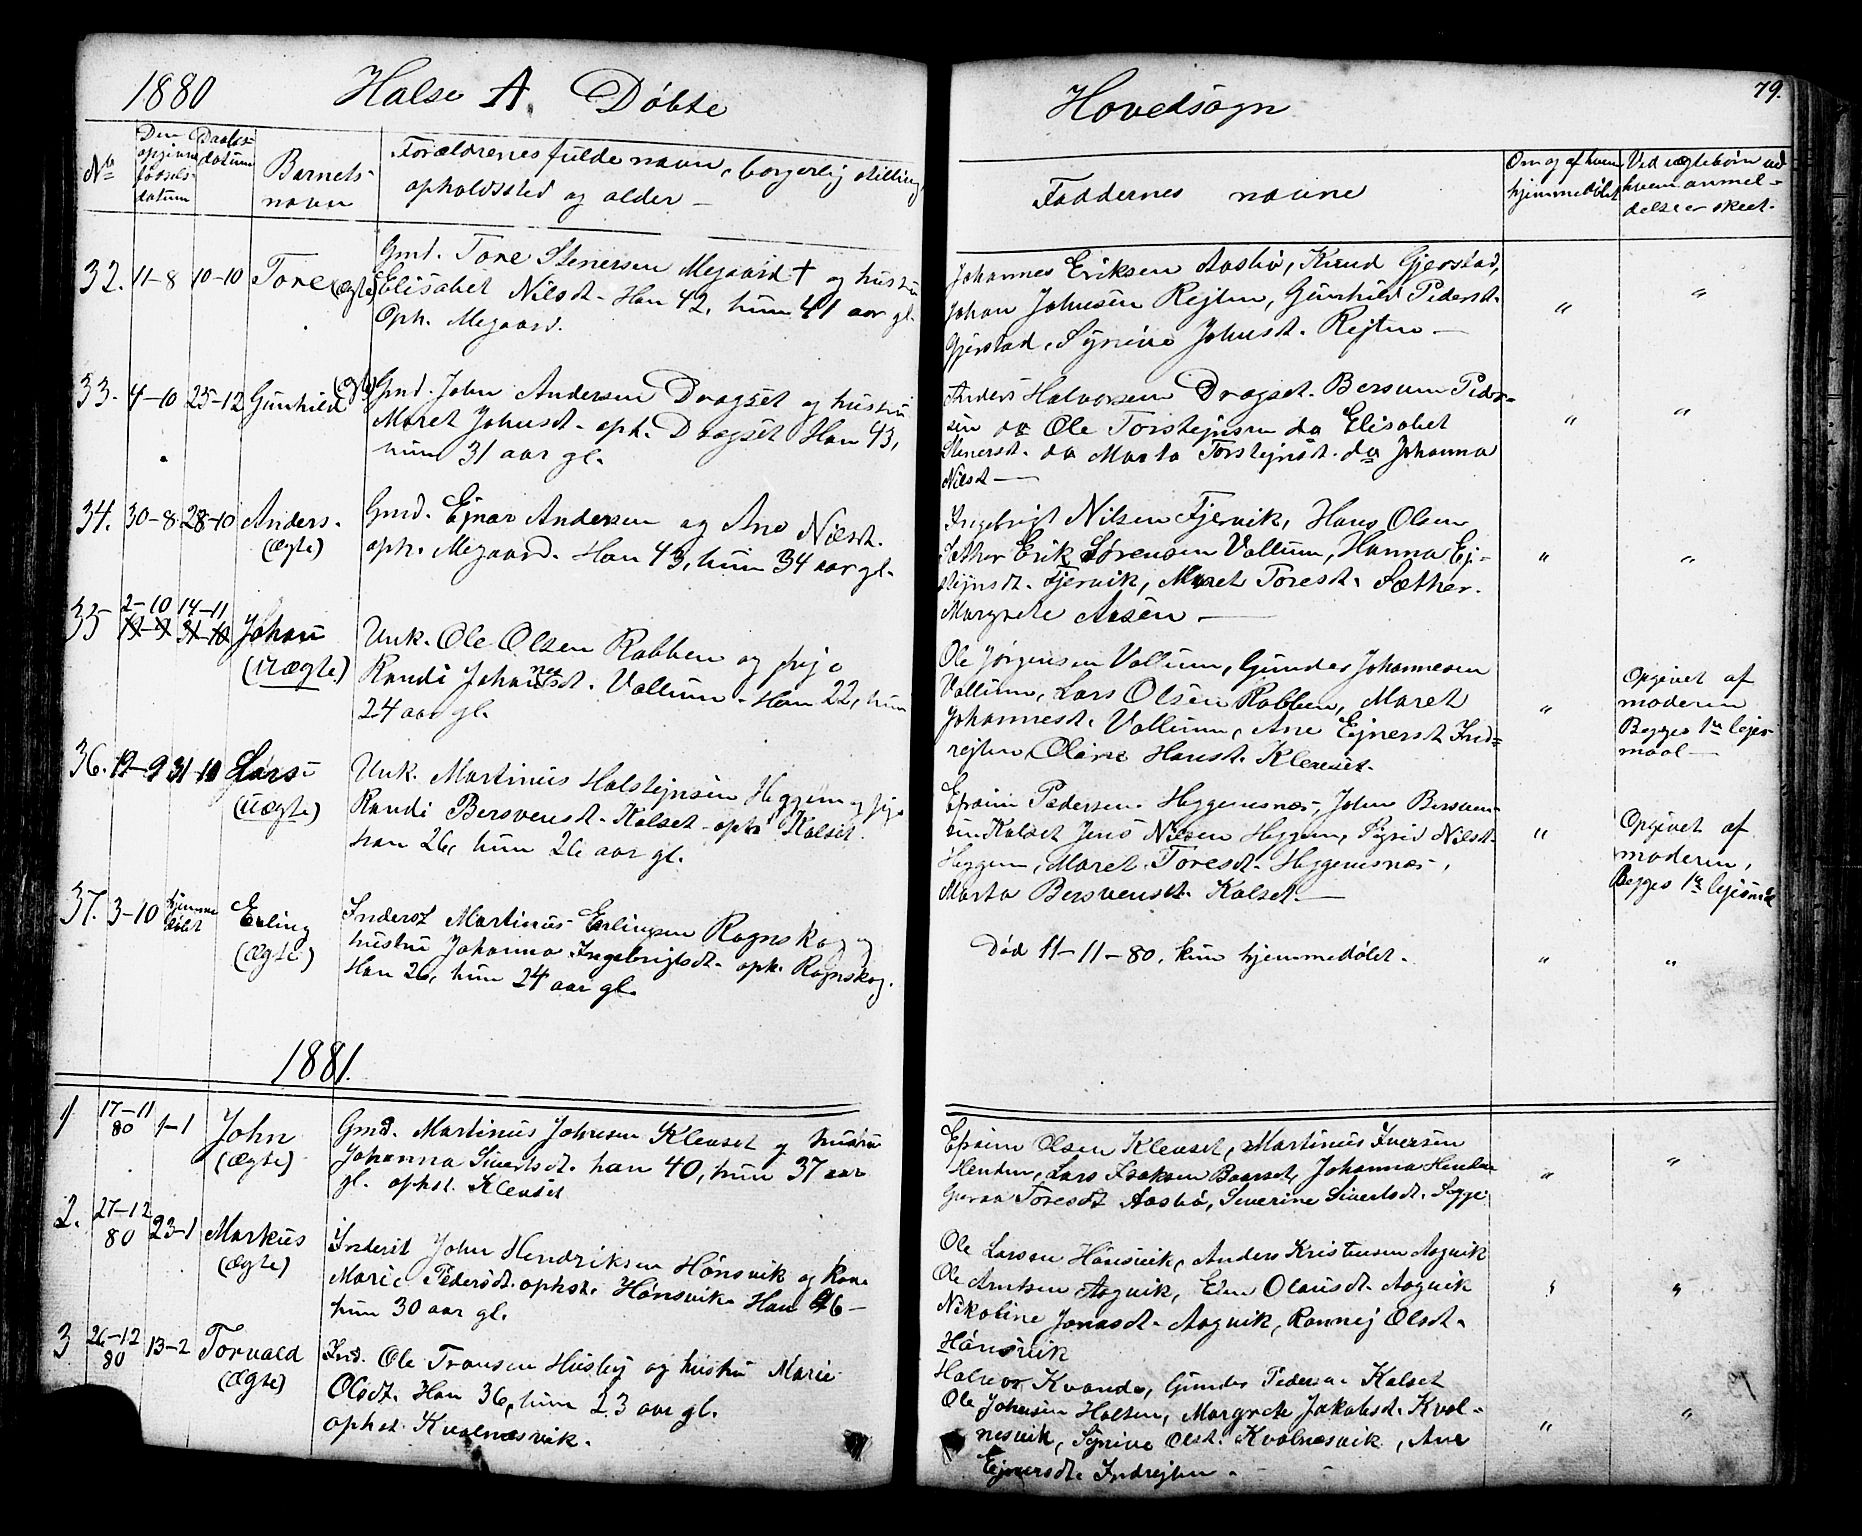 1880 Halse A. Døbte
Hovedsogn
79.
No
Den opgivne fødsels-datum
Daabs-datum
Barnets navn
Forældrenes fulde navn, borgerlig stilling
opholdssted og alder -
Faddernes navne
Om og af hvem
hjemmedøbt
Ved uægtebørn ved
hvem anmel-
delse er skeet.
32. 11-8 10-10 Tore (ægte)
Gmd. Tore Stenersen Megaard † og hustru
Elisabet Nilsdt. Han 42, hun 41 aar gl.
Oph. Megaard.
Johannes Eriksen Aasbø, Knud Gjerstad,
Johan Johnsen Rejten, Gunhild Pedersdt.
Gjerstad, Synive Johnsdt. Rejten -
" "
33. 4-10 25-12 Gunhild (ægte)
Gmd. John Andersen Dragset og hustru
Maret Johnsdt. oph. Dragset Han 43,
hun 31 aar gl.
Anders Halvorsen Dragset. Bersven Peder-
sen do Ole Torstejnsen do Elisabet
Stenersdt. do Marta Torstejnsdt. do Johanna
Nilsdt -
" "
34. 30-8 28-10 Anders. (ægte)
Gmd. Ejnar Andersen og Ane Nilsdt.
oph. Megaard. Han 43, hun 34 aar gl.
Ingebrigt Nilsen Fjervik, Hans Olsen
Sæther Erik Sørensen Vallum, Hanna Ej-
stejnsdt. Fjervik, Maret Toresdt. Sæther.
Margrete Aasen -
" "
35 2-10 14-11
19-9 31-10 Johan (uægte)
Unk. Ole Olsen Rabben og pige
Randi Johannesdt. Vallum - Han 22, hun
24 aar gl.
Ole Jørgensen Vallum, Gunder Johannesen
Vallum, Lars Olsen Rabben, Maret
Johannesdt. Vallum, Ane Ejnersdt Ind-
rejten, Olave Hansdt. Klevset.
"
Opgivet af
moderen
Begges 1ste lejer-
maal -
36. 19-9 31-10 Lars (uægte)
Unk. Martinus Halstejnsen Heggem og pige
Randi Bersvensdt. Kalset - oph. Kalset.
han 26, hun 26 aar gl.
Efraim Pedersen Heggemsnæs, John Bersven-
sen Kalset Jens Nilsen Heggem, Sigrid Nilsdt.
Heggem, Maret Toresdt. Heggemsnæs,
Marta Bersvensdt. Kalset. -
"
Opgivet af
moderen,
Begges 1ste lejermål
37. 3-10 hjemmedøbt Erling (ægte)
Inderst Martinus Erlingsen Rognskog og
hustru Johanna Ingebrigtsdt. oph. Rognskog.
Han 26, hun 24 aar gl.
Død 11-11-80. kun hjemmedøbt.
" "
1881.
1 17-11 80 1-1 John (ægte)
Gmd. Martinus Johnsen Klevset og hustru
Johanna Sivertsdt. han 40, hun 37 aar
gl. ophst. Klevset
Efraim Olsen Klevset, Martinus Iversen
Henden, Lars Isaksen Baarset, Johanna Henden
Toresdt Aasbø, Severine Sivertsdt.
" "
2. 27-12 80 23-1 Markus (ægte)
Inderst John Hendriksen Hønsvik og kone
Marie Pedersdt. ophst. Hønsvik. Han 46 -
hun 30 aar gl.
Ole Larsen Hønsvik, Anders Kristensen Aagvik
Ole Arntsen Aagvik, Elen Olausdt. Aagvik
Nikoline Jonasdt. Aagvik, Rannej Olsdt.
Hønsvik
" "
3 26-12 80 13-2 Torvald (ægte)
Ind. Ole Transen Husby og hustru Marie
Olsdt. Han 36, hun 23 aar gl.
ophst. Kvalnæsvik.
Halvor Kvande, Gunder Pedersen Kalset
Ole Johnsen Halsen, Margrete Jakobsdt. Kval-
nesvik, Synive Olsdt. Kvalnæsvik, Ane
Ejnersdt. Indrejten -
" "